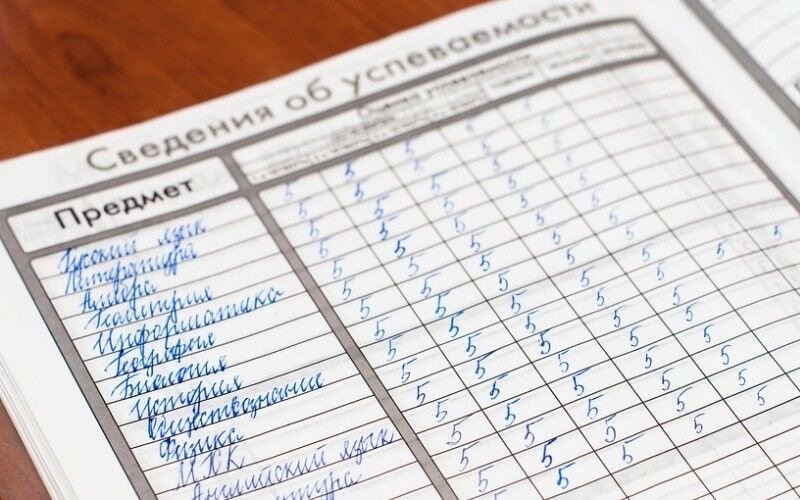 Сведения об успеваемости
Предмет
Оценка успеваемости
Русский язык 5 5 5 5 5
Литература 5 5 5 5 5
Алгебра 5 5 5 5 5
Геометрия 5 5 5 5 5
Информатика 5 5 5 5 5
География 5 5 5 5 5
Биология 5 5 5 5 5 5 5
История 5 5 5 5 5
Обществознание 5 5 5 5 5
Физика 5 5 5 5 5
МХК 5 5 5 5 5
Английский язык 5 5 5 5 5